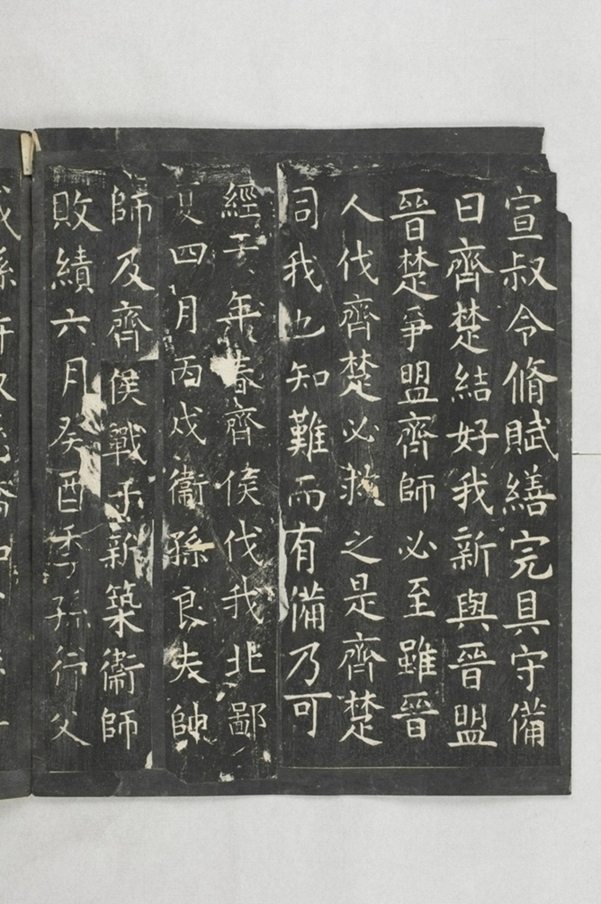 宣叔令脩賦繕完具守備
曰齊楚結好我新與晉盟
晉楚爭盟齊師必至雖晉
人伐齊楚必救之是齊楚
同我也知難而有備乃可
經二年春齊侯伐我北鄙
夏四月丙戌衛孫良夫帥
師及齊侯戰于新築衛師
敗績六月癸酉季孫行父